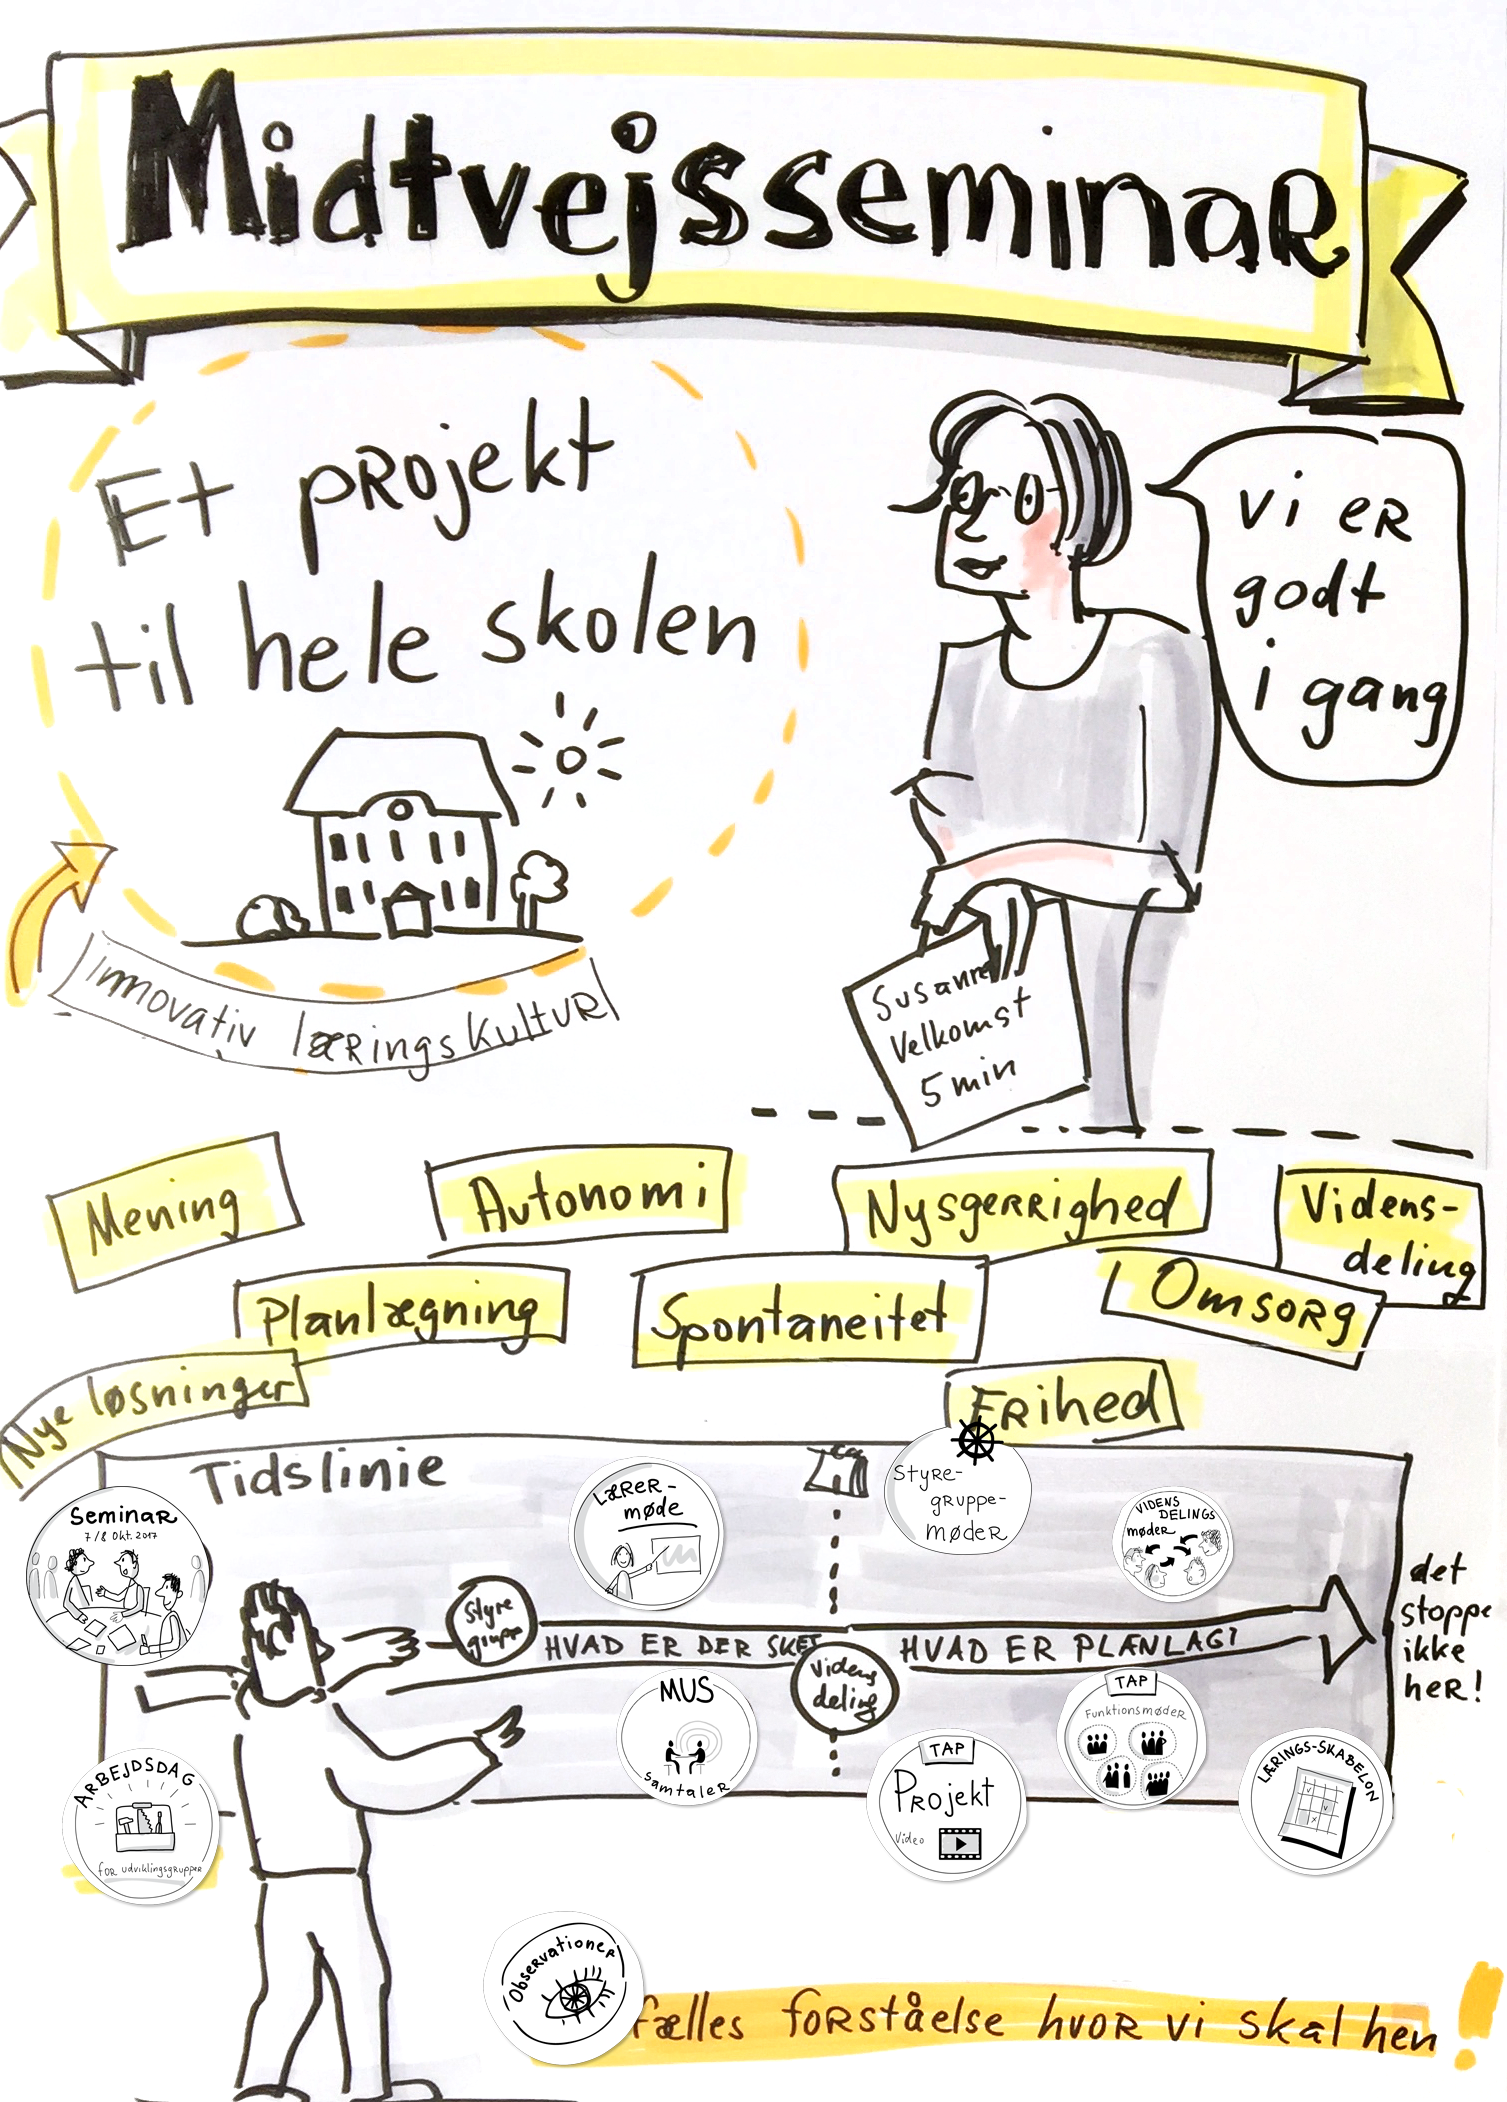 Midtvejsseminar
Et projekt
til hele skolen
Innovativ læringskultur
vi er
godt
i gang
Susanne
Velkomst
5 min
Mening
Autonomi
Nysgerrighed
Videns-
deling
Planlægning
Spontaneitet
Omsorg
Nye løsninger
Frihed
Tidslinie
Seminar
7/8 Okt. 2017
Lærer-
møde
Styre-
gruppe-
møder
VIDENS
DELINGS
møder
Styre
gruppe
HVAD ER DER SKET
HVAD ER PLANLAGT
Videns
deling
det
stoppe
ikke
her!
MUS
samtaler
TAP
Funktionsmøder
TAP
Projekt
Video
LÆRINGS-SKABELON
ARBEJDSDAG
for udviklingsgrupper
Observationer
fælles forståelse hvor vi skal hen!